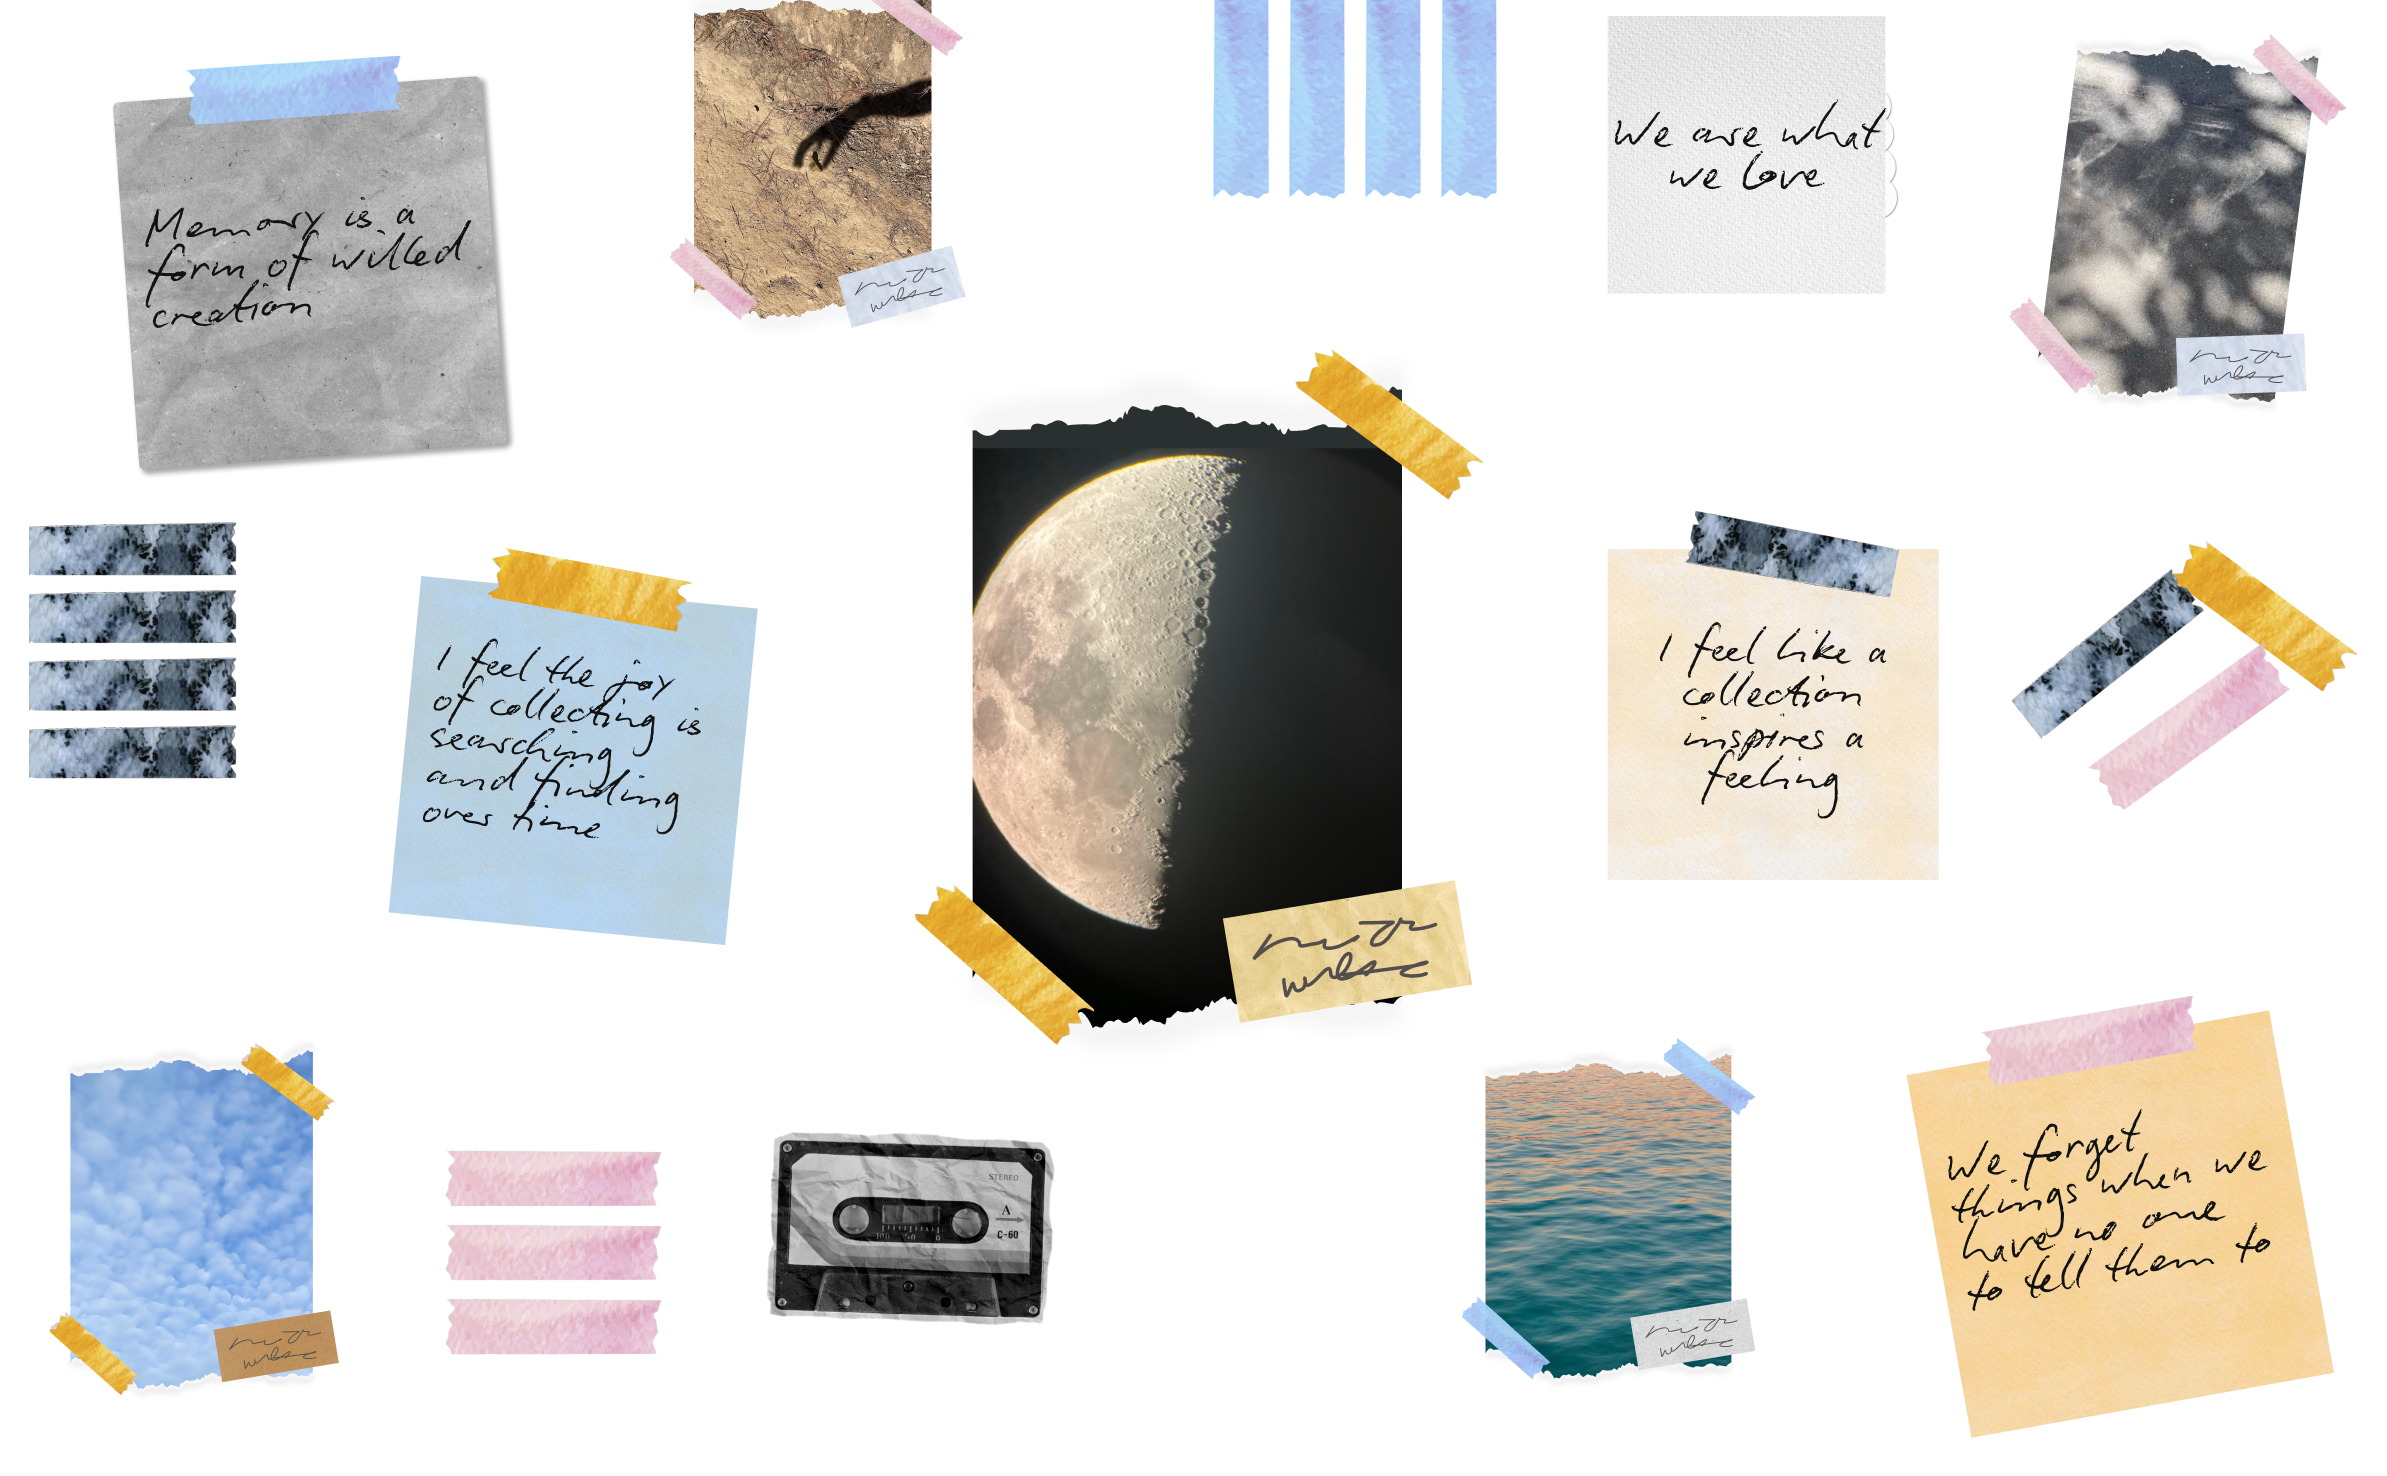 Memory is a
form of willed
creation
We are what
we love
I feel the joy
of collecting is
searching
and finding
over time
I feel like a
collection
inspires a
feeling
STEREO
A
100 50 0
C-60
We forget
things when we
have no one
to tell them to